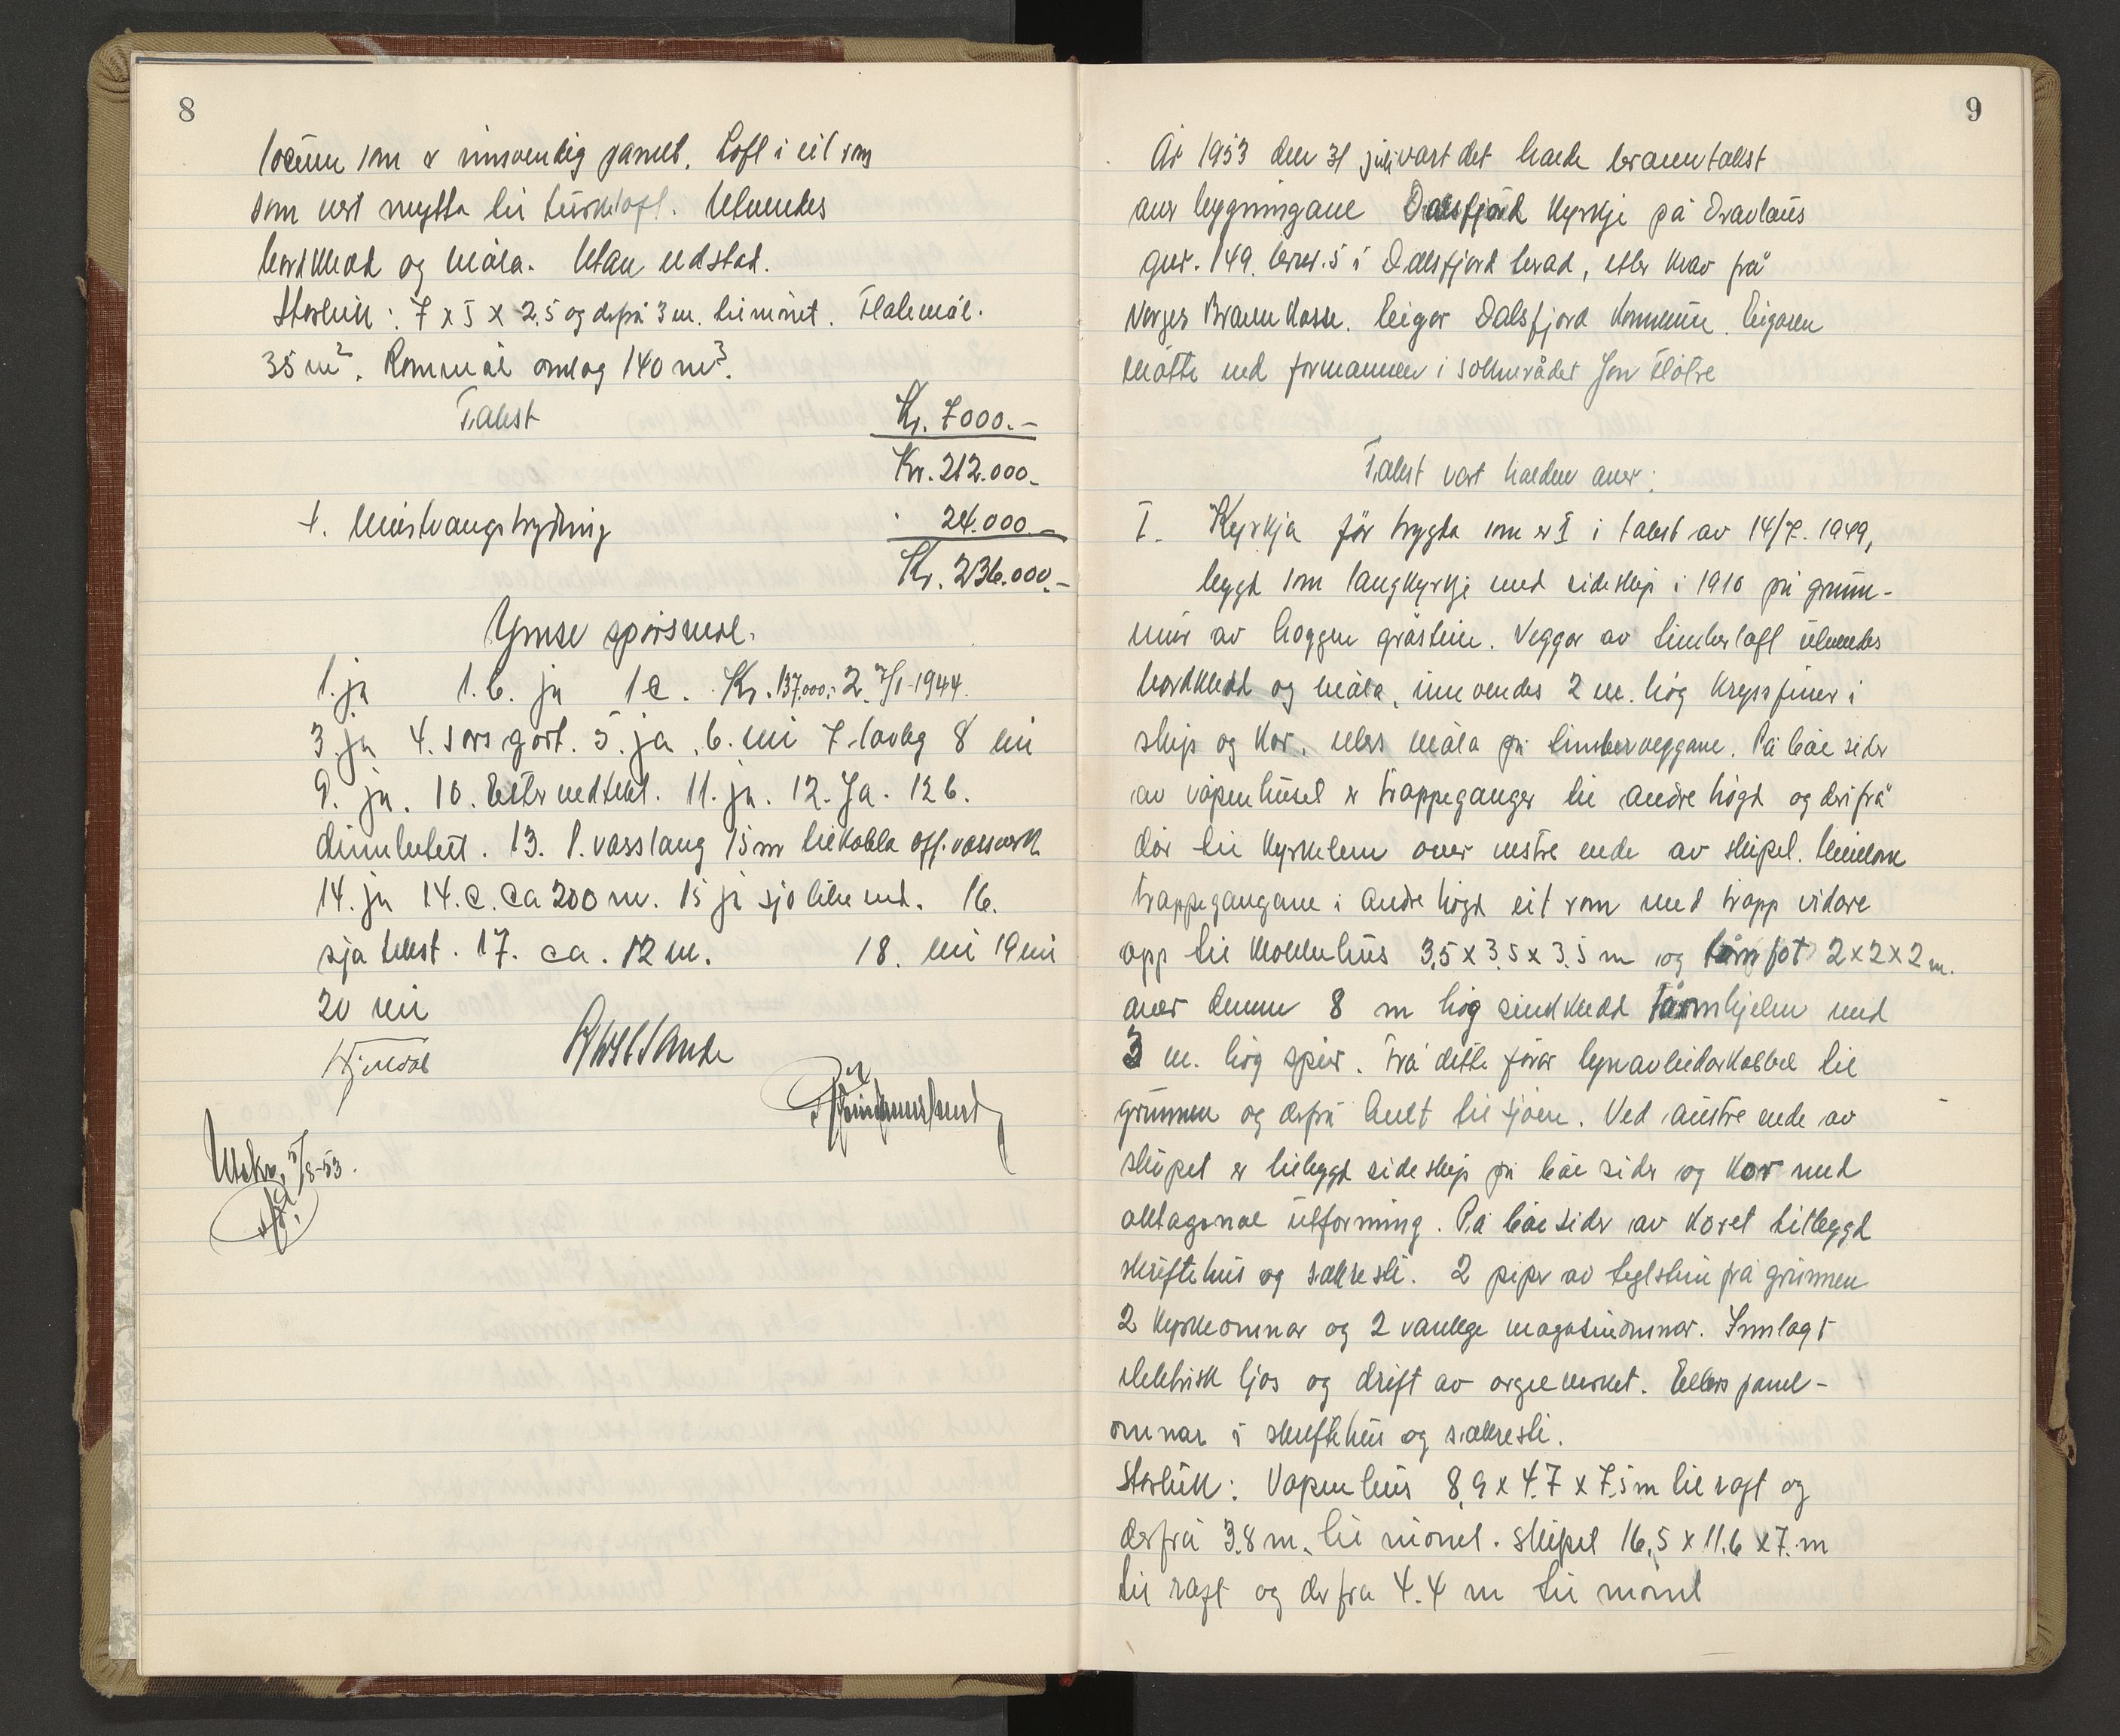 8
som er innvendig panelt. Loft i eit rom
som vert nytta til turkeloft. Utvendes
bordkledd og måla. Utan eldstad.
Storleik: 7 x 5 x 2,5 og derfrå 3 m. til mønet. Flatemål.
35 m². Rommål omlag 140 m³.
Takst Kr. 7000.-
Kr. 212.000.-
+. 24.000.-
Kr. 236.000.-
Ymse spørsmål.
1. ja 1.b. ja 1c. Kr. 137.000,- 2. 7/1-1944.
3. ja 4. gort. 5. ja. 6. nei 7. lovleg 8 nei
9. ja. 10. Etter vedtekt. 11. ja. 12. Ja. 12 b.
13. 1. vasslang 15 m tilkobla off. vassverk
14. ja 14.c. ca 200 m. 15 ja sjø like ved. 16.
sjå tekst. 17. ca. 12 m. 18. nei 19 nei
20 nei
Utskr. 5/8-53.
9
År 1953 den 31 juli vart det halde branntakst
over bygningane Dalsfjord Kyrkje på Dravlaus
gnr. 149. brnr. 5 i Dalsfjord herad, etter krav frå
Norges Brannkasse. Eigar Dalsfjord Kommune. Eigaren
møtte ved formannen i soknerådet Jon Fløtre
Takst vart halden over:
I. Kyrkja før trygda som nr I i takst av 14/7. 1949,
bygd som langkyrkje med sideskip i 1910 på grunn-
mur av hoggen gråstein. Veggar av timber loft utvendes
bordkledd og måla, innvendes 2 m. høg kryssfiner i
skip og kor, ellers måla på timberveggane. På båe sider
av våpenhuset er trappeganger til andre høgd og derifrå
dør til kyrkelem over vestre ende av skipet. Millom
trappegangane i andre høgd eit rom med trapp vidare
opp til klokkehus 3,5 x 3,5 x 3,5 m og tårnfot 2 x 2 x 2 m.
over denne 8 m høg sinkkledd tårnhjelm med
3 m. høg spir. Frå dette fører lynavleidarkabbel til
grunnen og derfrå heilt til sjøen. Ved austre ende av
skipet er tilbygd sideskip på båe sider og kor med
oktagonal utforming. På båe sider av koret tilbygd
skriftehus og sakresti. 2 piper av teglstein frå grunnen
2 kyrkjeomnar og 2 vanlege magasinomnar. Innlagt
elektrisk ljos og drift av orgelverket. Ellers panel-
omnar i skriftehus og sakresti.
Storleik: Våpenhus 8,9 x 4.7 x 7,5 m til raft og
derfrå 3.8 m. til mønet. Skipet 16,5 x 11,6 x 7. m
til raft og derfra 4.4 m til mønet